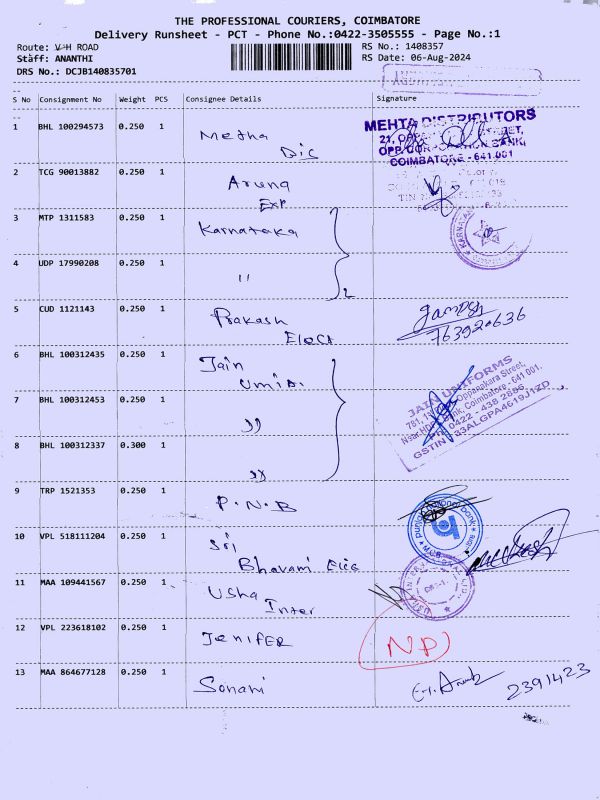 THE PROFESSIONAL COURIERS, COIMBATORE
Delivery Runsheet - PCT - Phone No.:0422-3505555 - Page No.:1
Route: V-H ROAD RS No.: 1408357
Staff: ANANTHI RS Date: 06-Aug-2024
DRS No.: DCJB140835701
S No Consignment No Weight PCS Consignee Details Signature
1 BHL 100294573 0.250 1 Metha Dis
MEHTA DISTRIBUTORS
OPP. CORPORATION BANK,
COIMBATORE - 641 001
2 TCG 90013882 0.250 1 Aruna Exp
3 MTP 1311583 0.250 1 Karnataka
4 UDP 17990208 0.250 1 "
5 CUD 1121143 0.250 1 Prakash Elect
6 BHL 100312435 0.250 1 Jain
JAIN UNIFORMS
Oppanakara Street,
Bank, Coimbatore - 641 001.
0422 - 438 2886
GSTIN : 33ALGPA4619J1ZD
7 BHL 100312453 0.250 1 "
8 BHL 100312337 0.300 1 "
9 TRP 1521353 0.250 1 P.N.B
punjab national bank
10 VPL 518111204 0.250 1 Sri Bhavani Elec
11 MAA 109441567 0.250 1 Usha Inter
12 VPL 223618102 0.250 1 Jenifer NP
13 MAA 864677128 0.250 1 Sonani 2391423